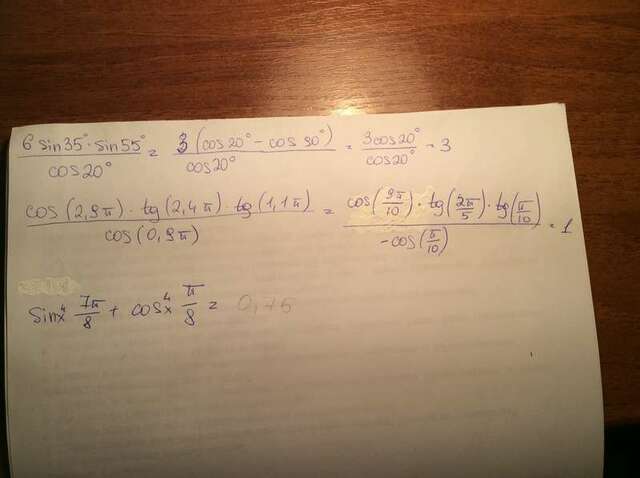 6 sin35° · sin55° / cos20° = 3 (cos20° - cos 90°) / cos20° = 3cos20° / cos20° = 3
cos (2,9π) · tg (2,4π) · tg (1,1π) / cos (0,9π) = cos (9π/10) · tg (2π/5) · tg (π/10) / -cos (π/10) = 1
sin⁴ 7π/8 + cos⁴ π/8 = 0,75